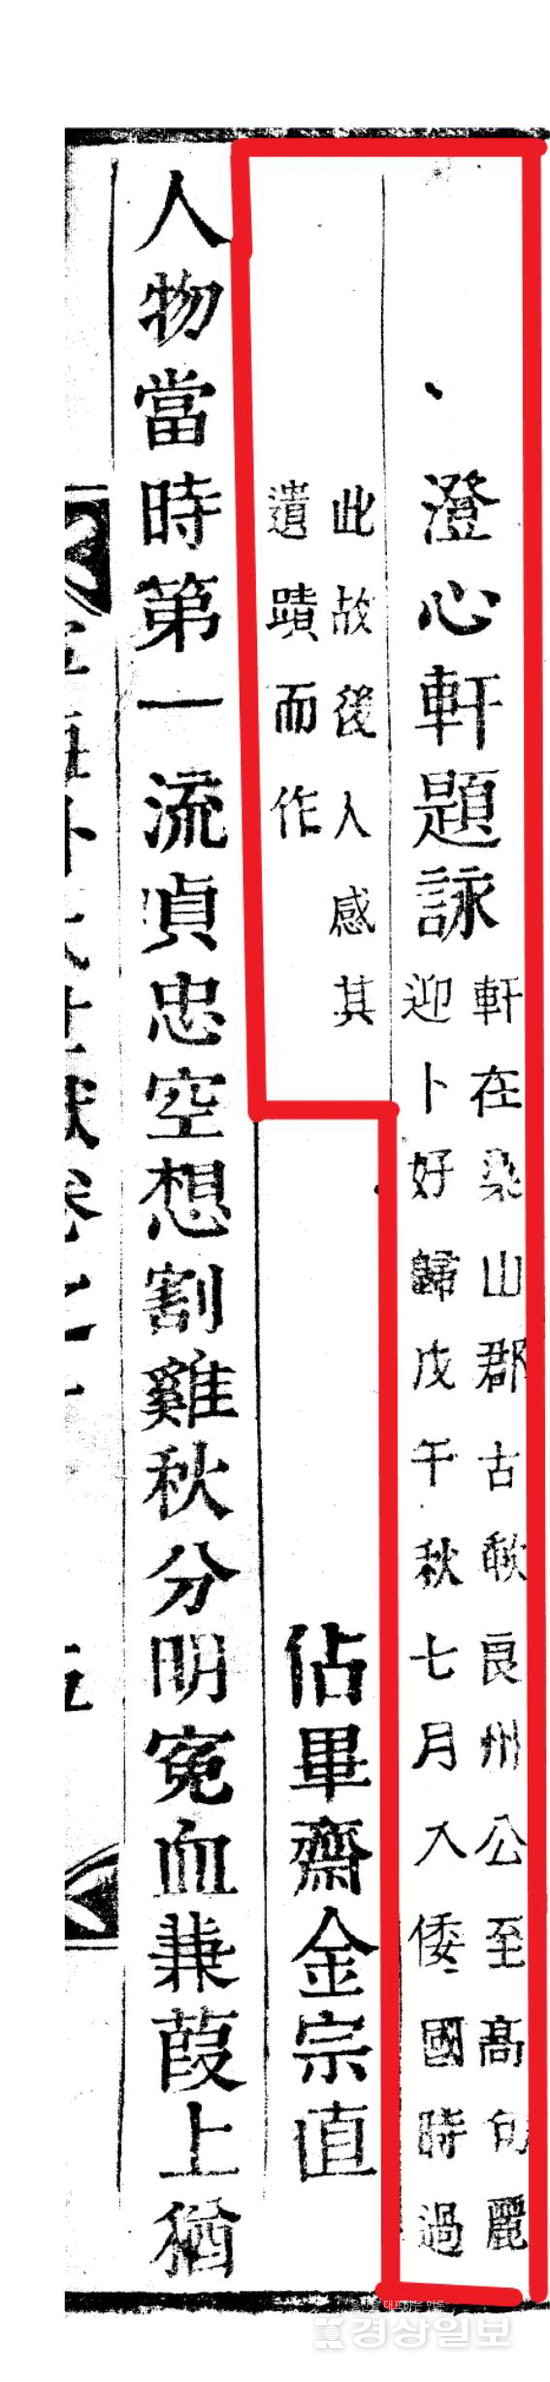 澄心軒題詠
軒在梁山郡古歃良州公至高句麗
迎卜好歸戊午秋七月入倭國時過
此故後人感其
遺蹟而作
佔畢齋金宗直
人物當時第一流貞忠空想割雞秋分明寃血蒹葭上猶
五
경상일보